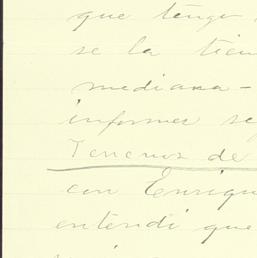 que tengo
se la tien
mediana-
informes se
Terrenos de
con Enriqu
entendi que